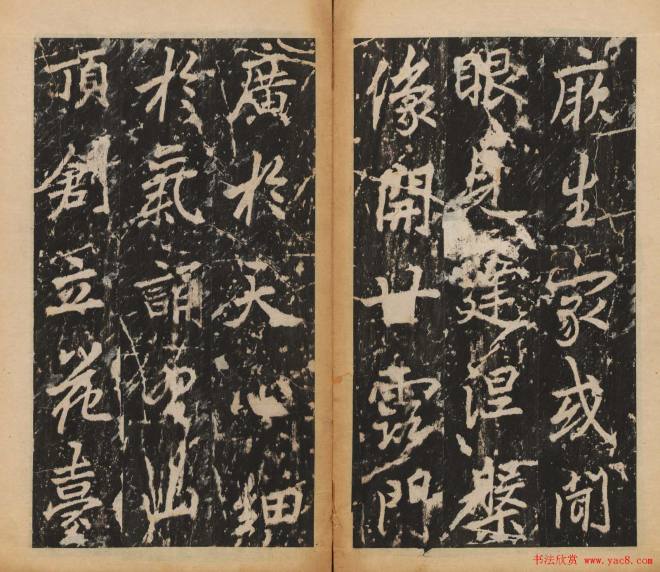 厥生家或聞
眼見建涅槃
像開甘露門
廣於天心細
於氣誦山
頂創立花臺
书法欣赏 www.yac8.com